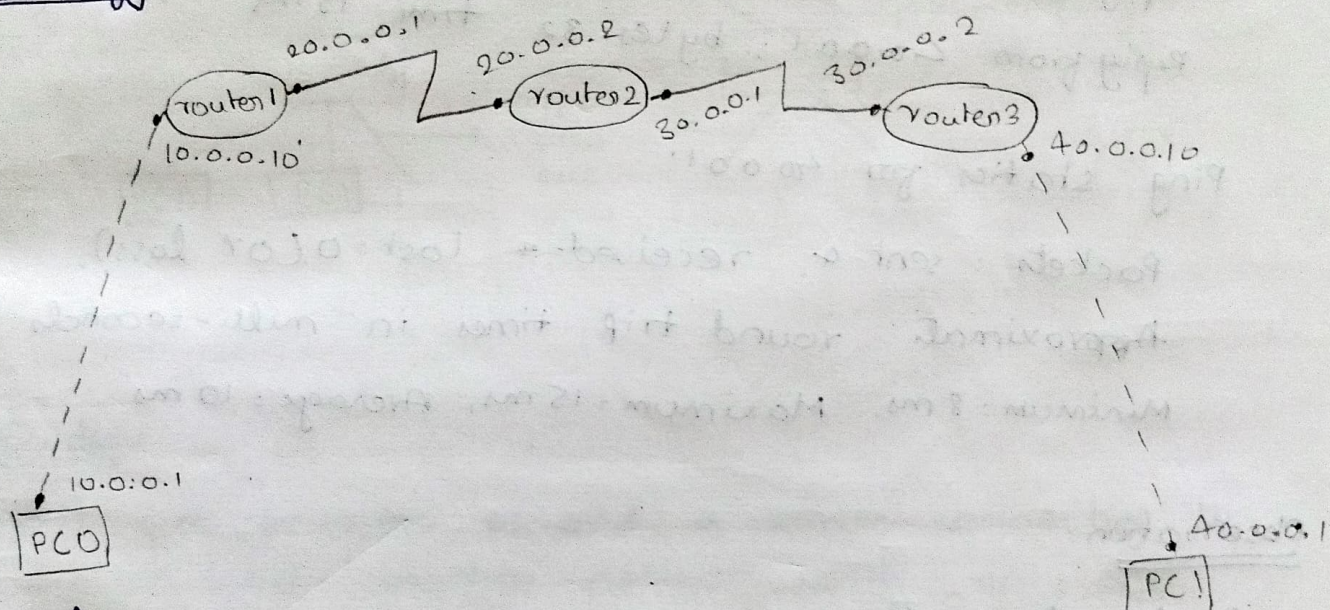 20.0.0.1
20.0.0.2
30.0.0.2
router1
router2
30.0.0.1
router3
10.0.0.10
40.0.0.10
10.0.0.1
PC0
40.0.0.1
PC1